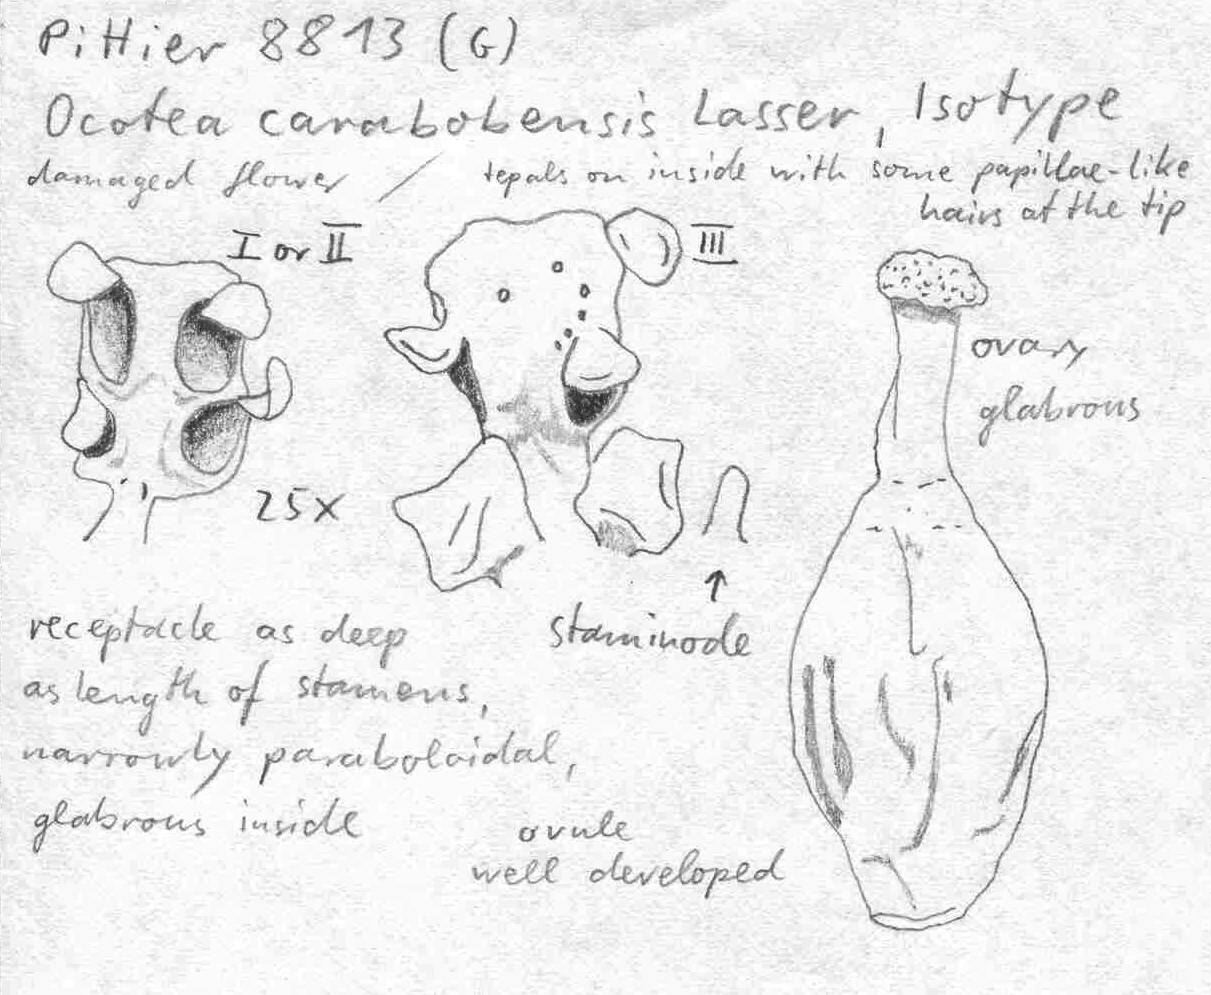 Pittier 8813 (G)
Ocotea carabobensis Lasser, Isotype
damaged flower / tepals on inside with some papillae-like
hairs at the tip
I or II
III
ovary
glabrous
25x
staminode
receptacle as deep
as length of stamens,
narrowly paraboloidal,
glabrous inside
ovule
well developed